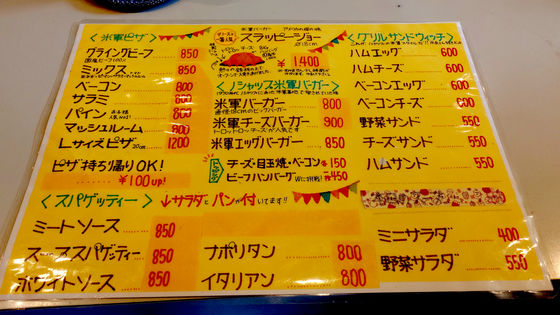 ＜米軍ピザ＞
グラインダビーフ 850
国産ビーフ100%
ミックス 850
ベーコン 800
サラミ 800
パイン 800
マッシュルーム 800
Lサイズピザ 1200
ピザ持ち帰りOK!
¥100up!
米軍バーガー
スラッピージョー
¥1400
＜ノシャップ米軍バーガー＞
米軍バーガー 800
米軍チーズバーガー 900
トロットロッチーズが人気です
米軍エッグバーガー 850
チーズ・目玉焼・ベーコン 各150
ビーフハンバーグ 450
＜グリルサンドウィッチ＞
ハムエッグ 600
ハムチーズ 600
ベーコンエッグ 600
ベーコンチーズ 600
野菜サンド 550
チーズサンド 550
ハムサンド 550
ミニサラダ 400
野菜サラダ 550
＜スパゲッティー＞
↓サラダとパンが付いてます!!
ミートソース 850
スープスパゲッティー 850
ホワイトソース 850
ナポリタン 800
イタリアン 800